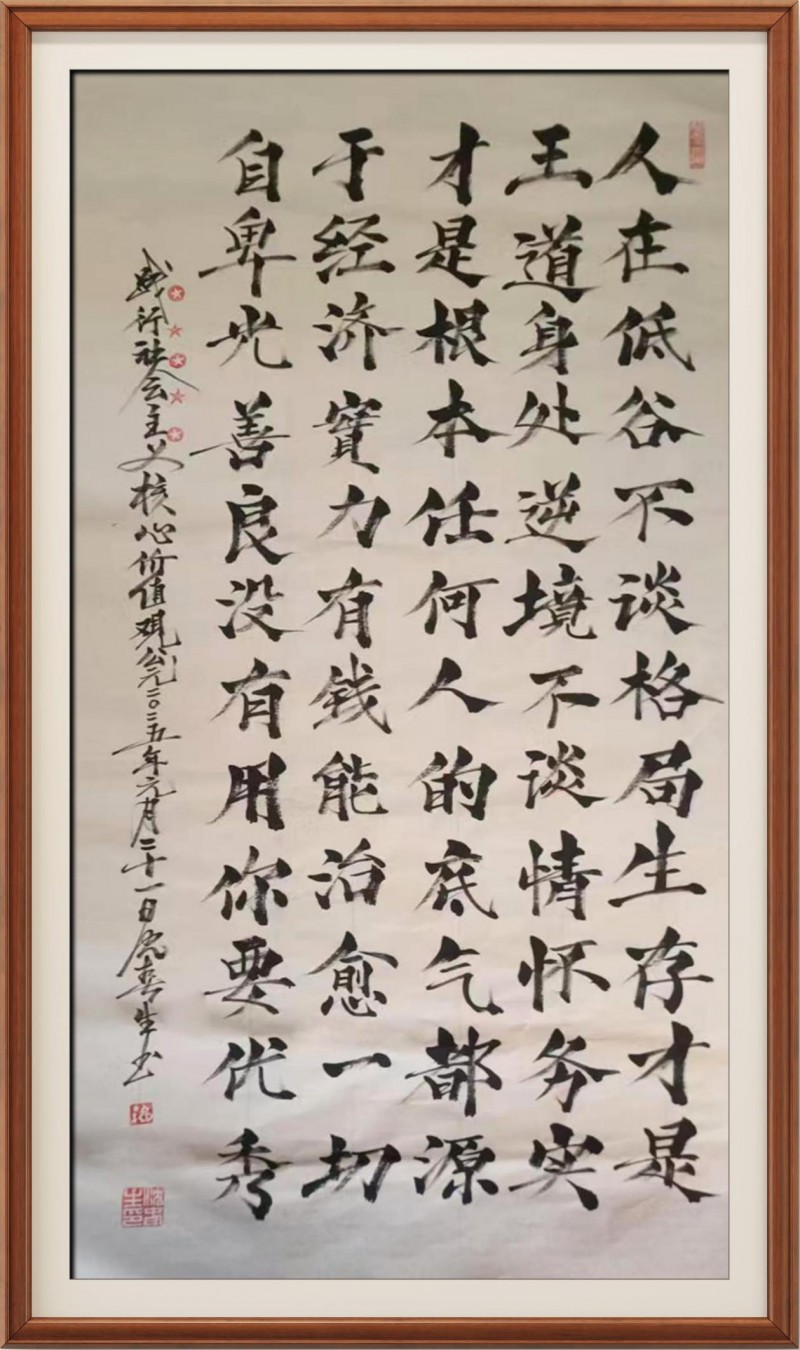 人在低谷不谈格局生存才是
王道身处逆境不谈情怀务实
才是根本任何人的底气都源
于经济實力有钱能治愈一切
自卑光善良没有用你要优秀
践行社会主义核心价值观公元二〇二五年元月二十一日喜生书